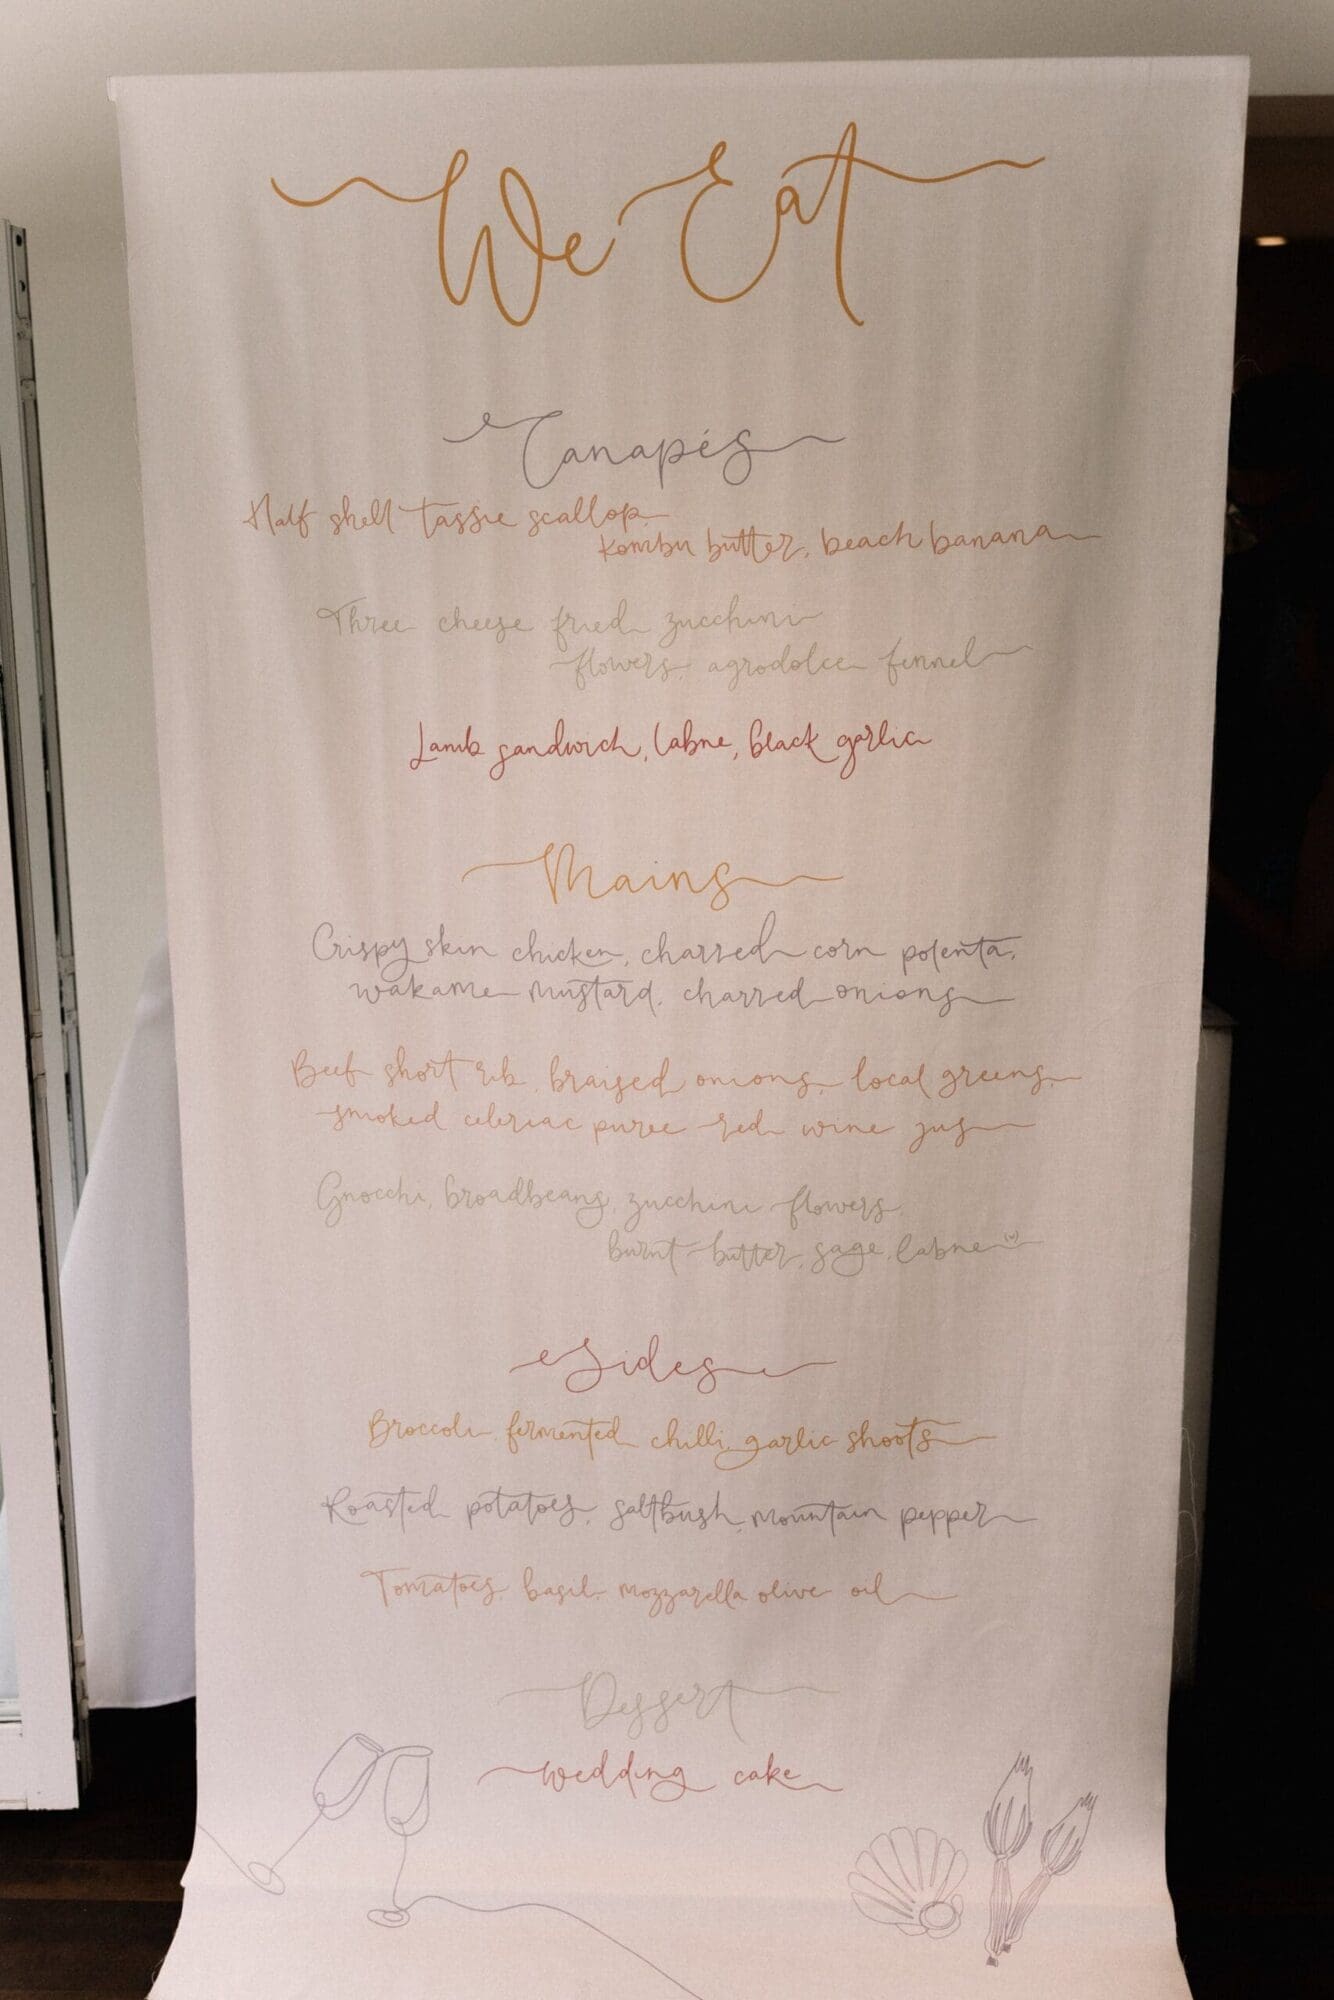 We Eat
Canapés
Half shell tassie scallop,
kombu butter, beach banana
Three cheese fried zucchini
flowers, agrodolce fennel
Lamb sandwich, labne, black garlic
Mains
Crispy skin chicken, charred corn polenta,
wakame mustard, charred onions
Beef short rib, braised onions, local greens,
smoked celeriac puree red wine jus
Gnocchi, broadbeans, zucchini flowers,
burnt butter, sage, labne
Sides
Broccoli, fermented chilli, garlic shoots
Roasted potatoes, saltbush, mountain pepper
Tomatoes, basil, mozzarella olive oil
Dessert
wedding cake